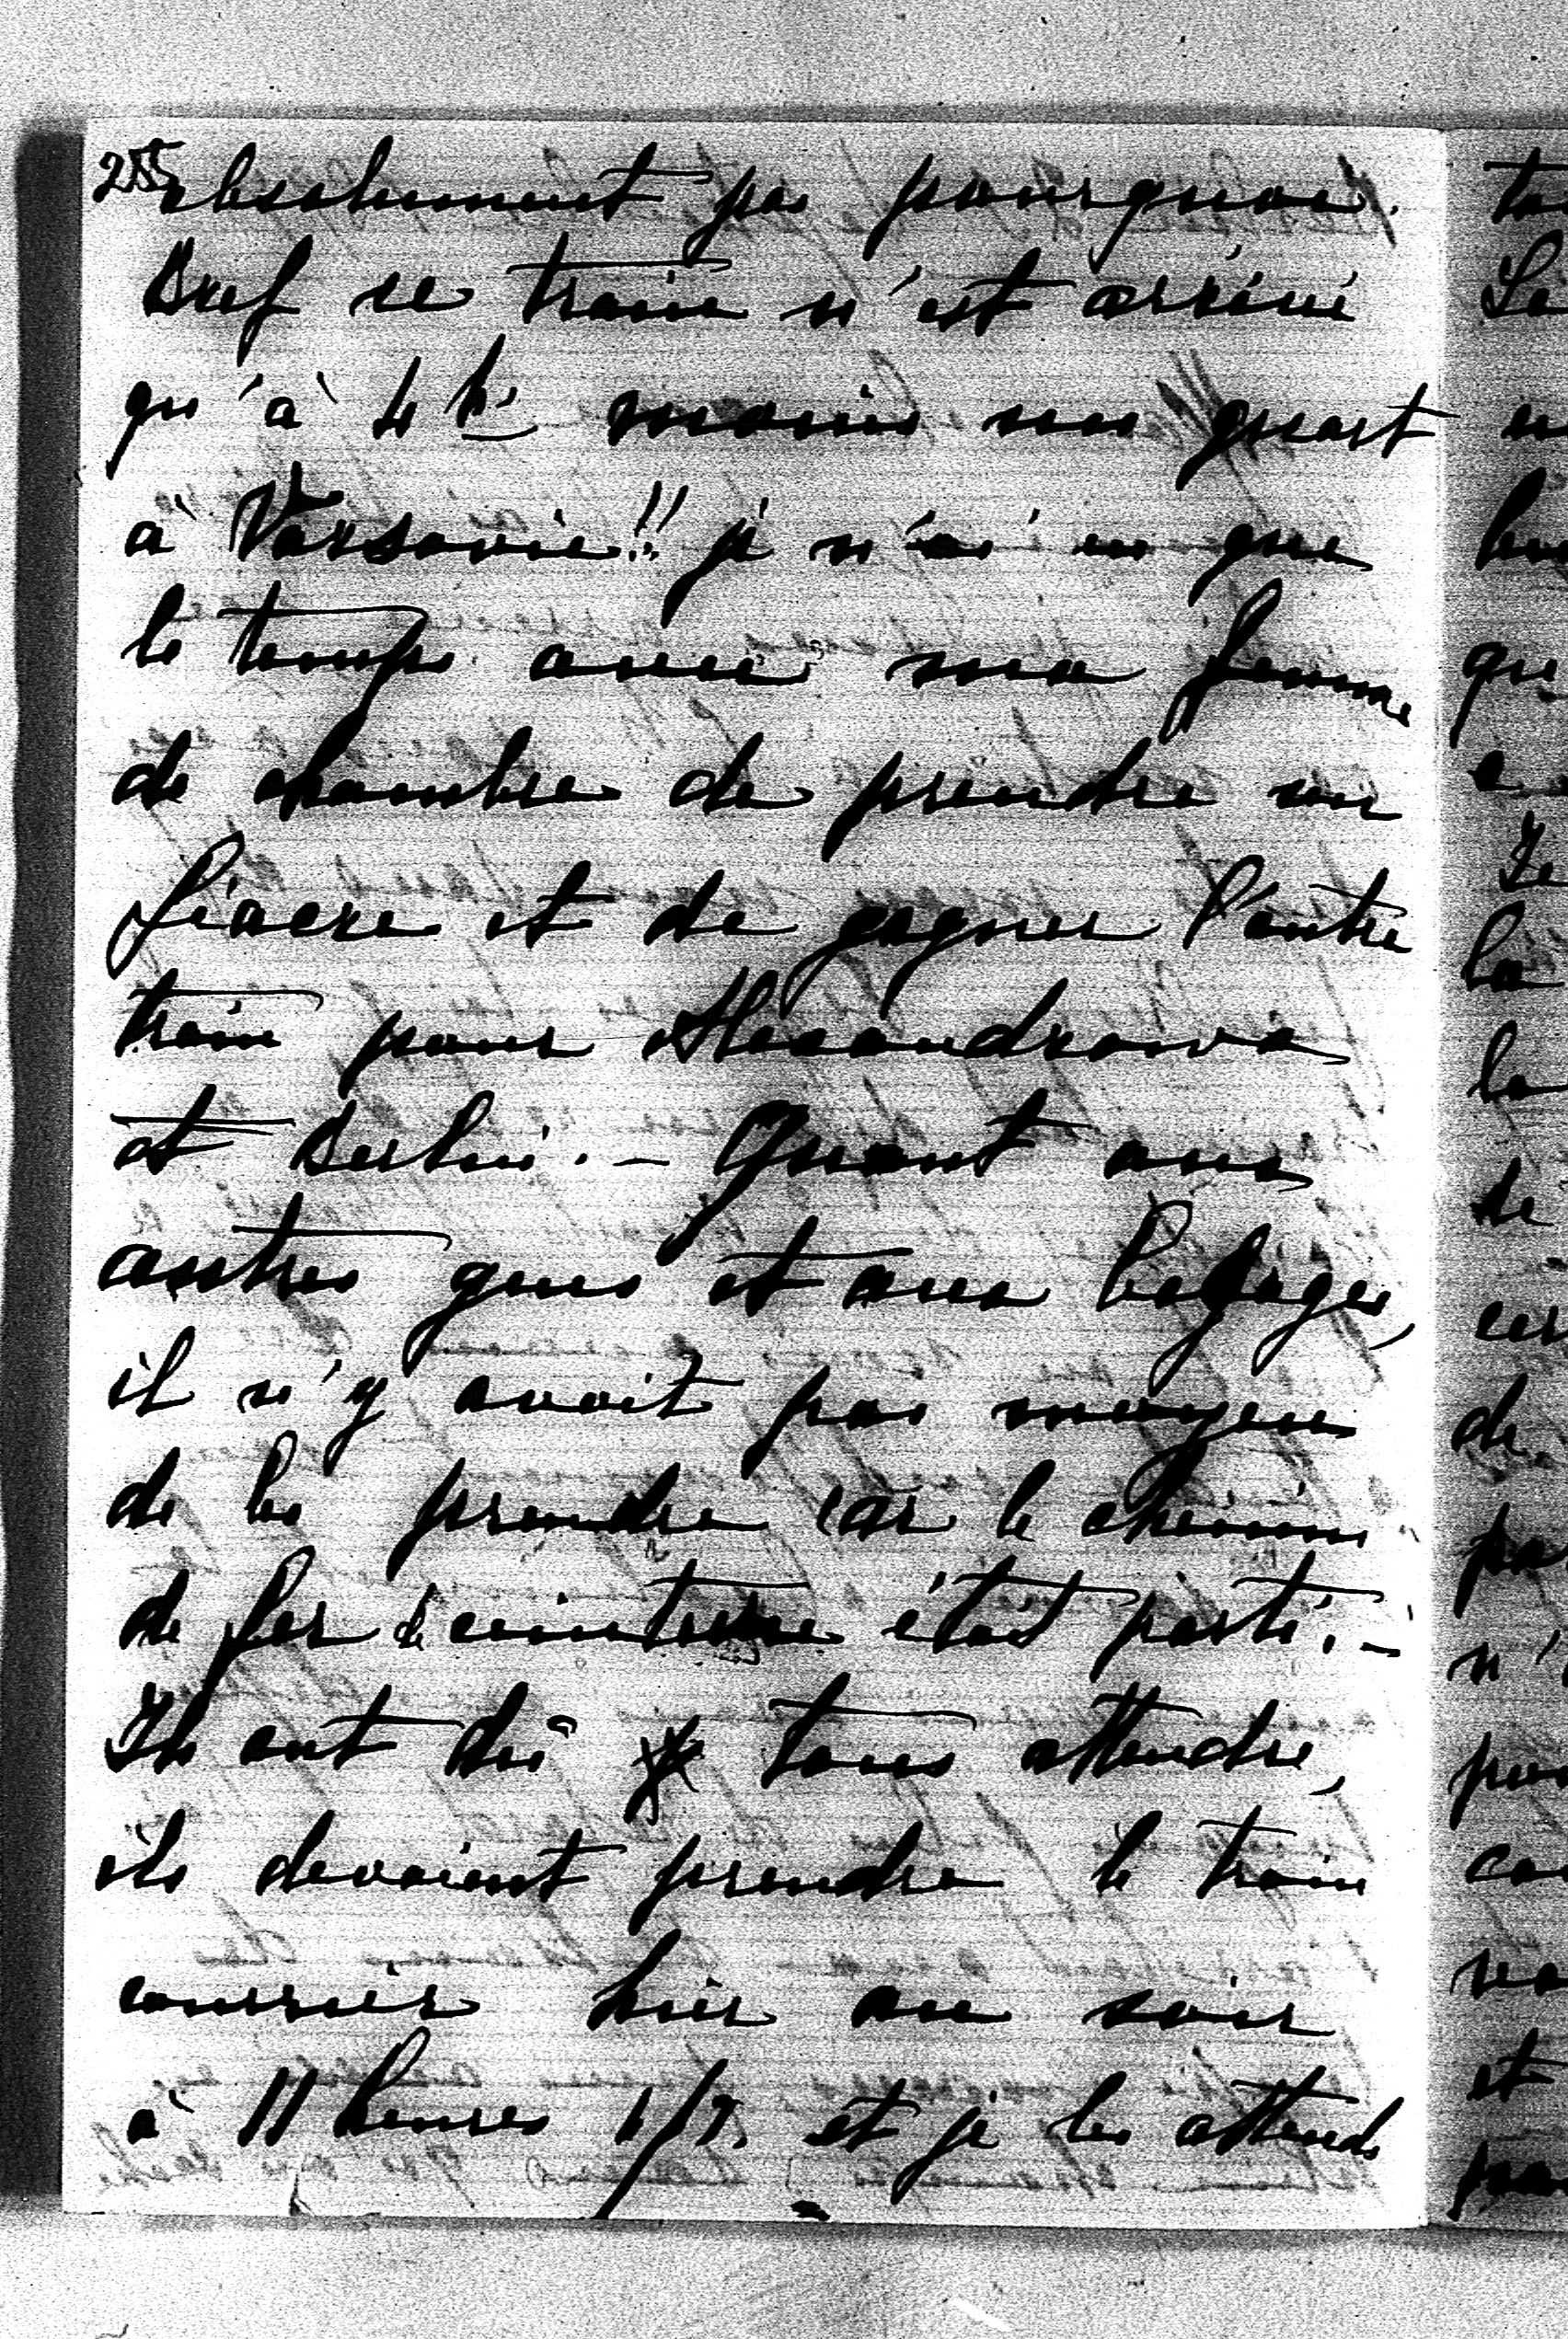 255
absolument pas pourquoi.
Bref ce train n'est arrivé
qu'à 4 h. moins un quart
à Varsovie!! je n'ai eu que
le temps avec ma femme
de chambre de prendre un
fiacre et de gagner l'autre
train pour Alexandrowo
et Berlin. – Quant aux
autres gens et aux bagages,
il n'y avait pas moyen
de les prendre car le chemin
de fer de ceinture était parti. –
Ils ont dû tous attendre,
ils devaient prendre le train
courrier hier au soir
à 11 heures 1/2. et je les attends